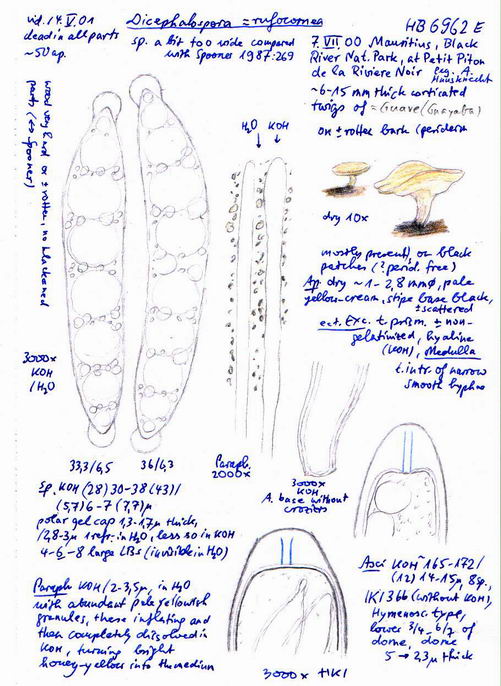 vid. 14. V. 01
dead in all parts
~50 ap.
Dicephalospora = rufocornea
sp. a bit too wide compared
with Spooner 1987:269
HB 6962 E
7. VII 00 Mauritius, Black
River Nat. Park, at Petit Piton
de la Riviere Noir leg. A.
Hausknecht
~6-15 mm thick corticated
twigs of = Guave (Guayaba)
on ± rotten bark (periderm
wood very hard or ± rotten, no blackened
parts (↔ Spooner)
H2O KOH
dry 10x
mostly present, on black
patches (? perid. free)
Ap. dry ~1-2,8 mmø, pale
yellow-cream, stipe base black,
± scattered
ect. Exc. t. prism. ± non-
gelatinized, hyaline
(KOH), Medulla
t. intr. of narrow
smooth hyphae
3000x
KOH
/H2O
33,3/6,5 36/6,3
Paraph.
2000x
3000x
KOH
A. base without
croziers
Sp. KOH (28) 30-38 (43)/
(5,7) 6-7 (7,7)µ
polar gel cap 1,3-1,7µ thick,
/2,8-3µ ± refr. in H2O, less so in KOH
4-6-8 large LBs (invisible in H2O)
Paraph KOH /2-3,5µ, in H2O
with abundant pale yellowish
granules, these inflating and
then completely dissolved in
KOH, turning bright
honey-yellow into the medium
3000x +IKI
Asci KOH ~165-172/
(12) 14-15µ, 8sp.
IKI 3bb (without KOH),
Hymenosc. type,
lower 3/4-6/7 of
dome, dome
5 → 2,3µ thick